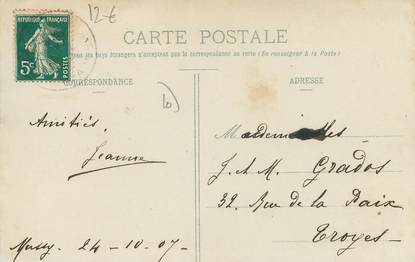 12 €
REPUBLIQUE FRANÇAISE
5c POSTES
CARTE POSTALE
Tous les pays étrangers n'acceptent pas la correspondance au recto (Se renseigner à la Poste)
CORRESPONDANCE
ADRESSE
Amitiés,
Jeanne
Mussy. 24-10-07-
Mademoiselles
J. et M. Grados
32, Rue de la Paix
Troyes-